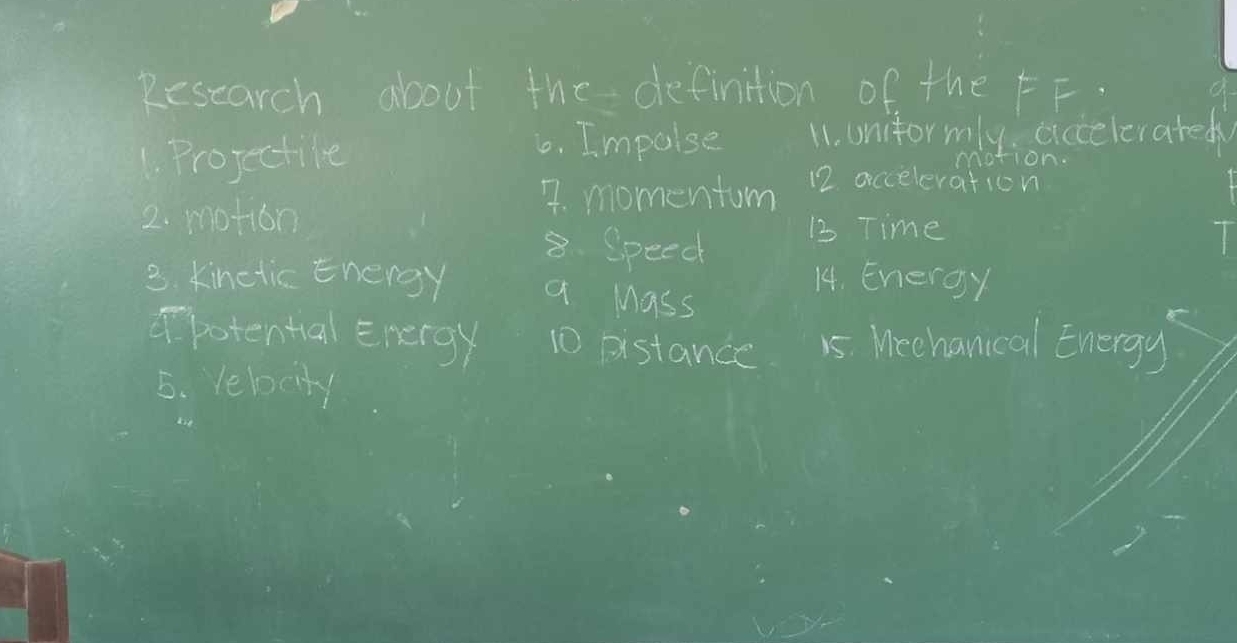 Research about the definition of the FF.
1. Projectile
2. motion
3. Kinetic Energy
4. potential Energy
5. Velocity
6. Impolse
7. momentum
8. Speed
9 Mass
10 Distance
11. uniformly accelerated
motion.
12 acceleration
13 Time
14. Energy
15. Mechanical Energy